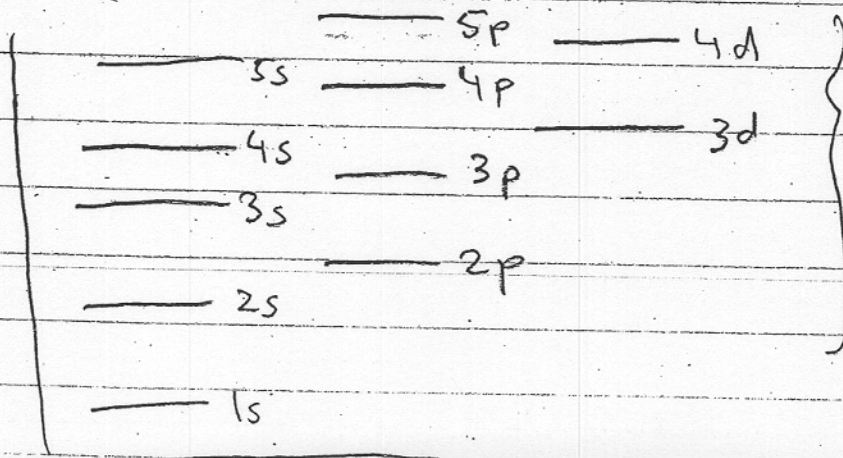 5p
4d
5s
4p
3d
4s
3p
3s
2p
2s
1s